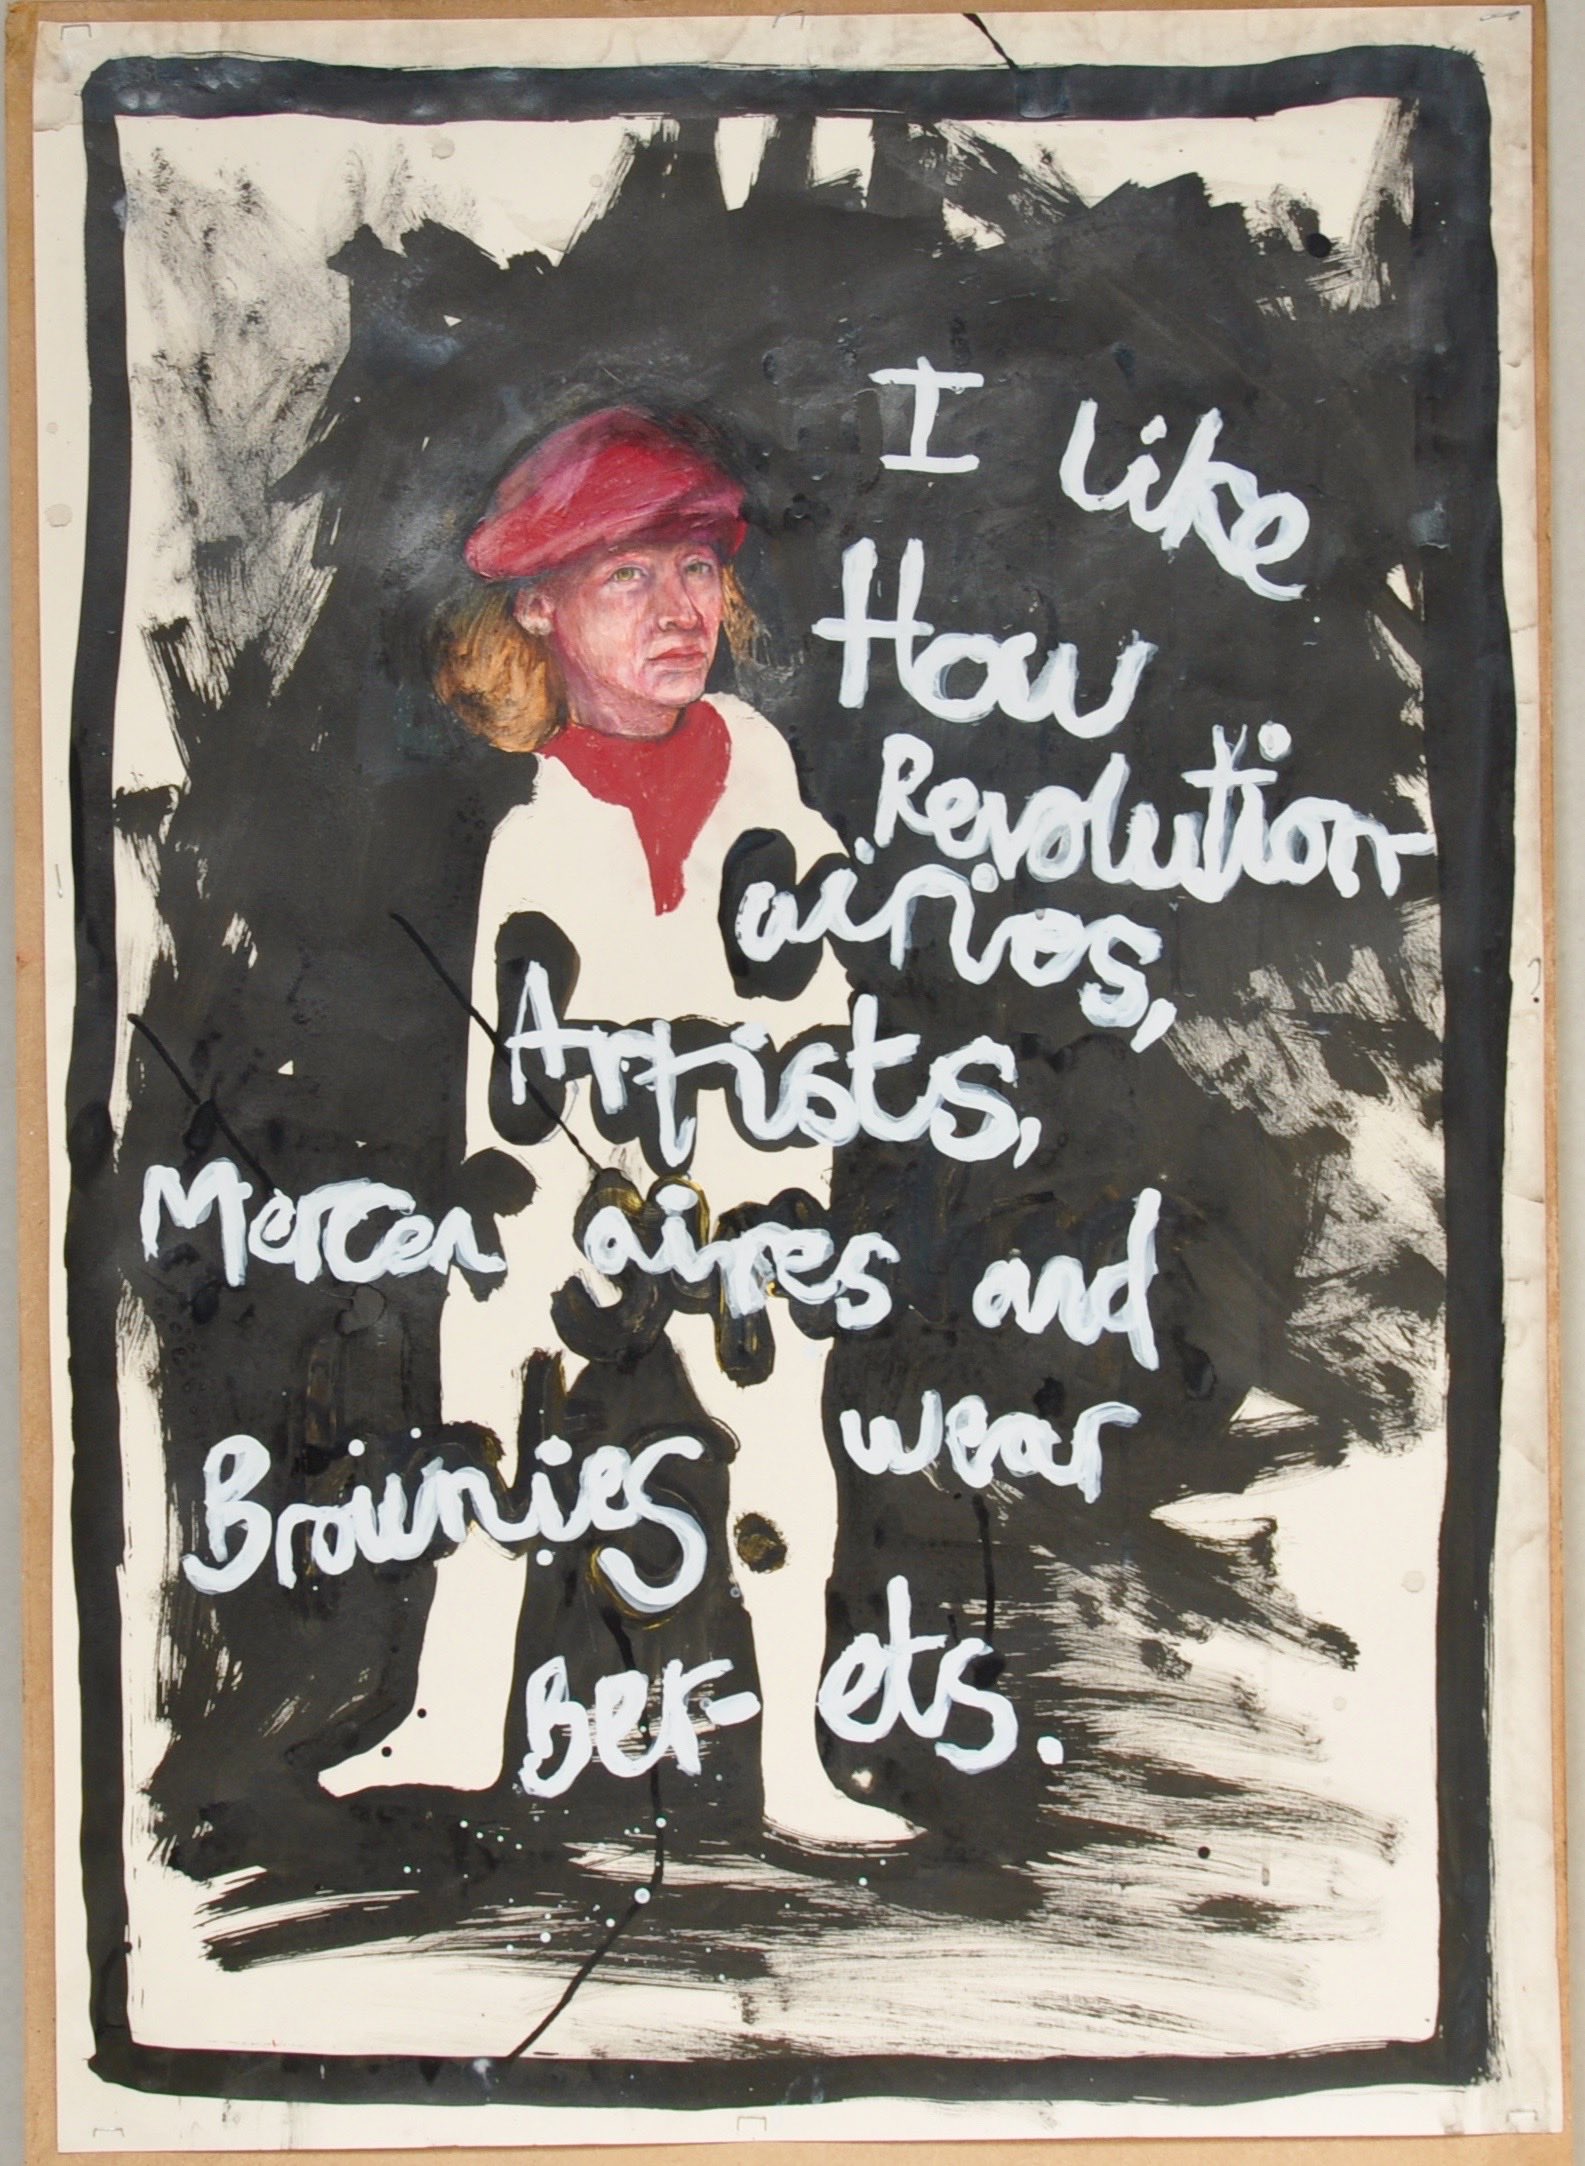 I like
How
Revolution-
airies,
Artists,
Mercenaires and
Brownies wear
Ber-ets.